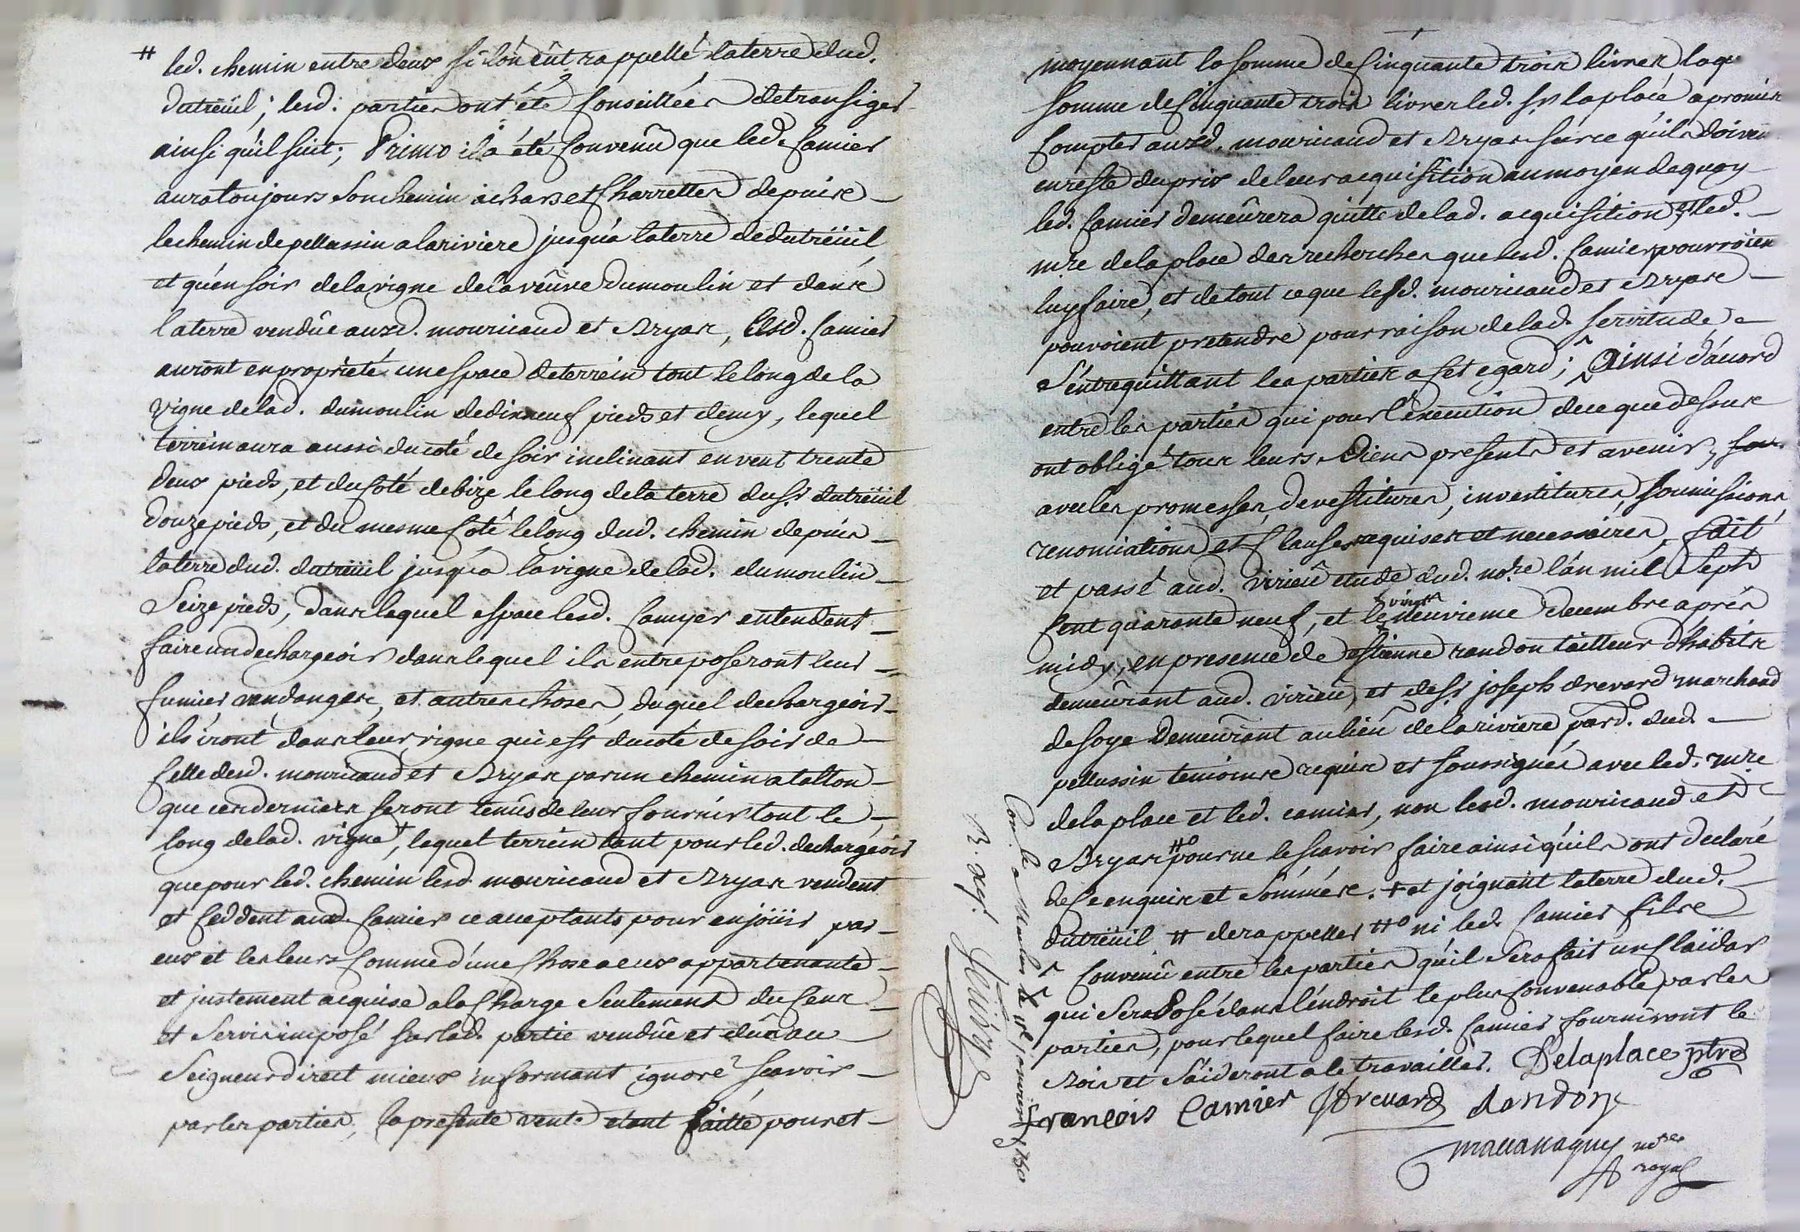 # led. chemin entre deux si lón eût rappellé la terre dud.
dutreüil; lesd: parties ont été Conseillées de transiger
ainsi qu'il suit; Primo il a été Convenû que led. Camier
aura toujours son chemin à chars et Charrettes depuis
le chemin de pellussin a la riviere jusqu'a la terre de dutreüil
et qu'en soir de la vigne de la veuve dumoulin et dans
la terre vendûe auxd. mouricaud et Bryas, lesd. Camier
auront en proprieté une space de terrein tout le long de la
vigne de lad. dumoulin de dix neuf pieds et demy, lequel
terrein aura aussi du coté de soir inclinant en vent trente
deux pieds, et du Coté de bize le long de la terre du sr. dutreüil
douze pieds, et du mesme Coté le long dud. chemin depuis
la terre dud. dutreüil jusqu'a la vigne de lad. dumoulin
Seize pieds, dans lequel espace lesd. Camyer entendent
faire un dechargeoir dans lequel ils entreposeront leur
fumier vendanges, et autres choses, duquel dechargeoir
ils iront dans leur vigne qui est du coté de soir de
Celle desd. mouricaud et Bryas par un chemin a tallon
que ces derniers seront tenûs de leur fournir tout le
long de lad. vigne, lequel terrein tant pour led. dechargeoir
que pour led. chemin lesd. mouricaud et Bryas vendent
et Ceddent aud. Camier ce acceptants pour en joüir par
eux et les leurs Comme d'une Chose a eux appartenante
et justement acquise a la Charge seulement du Cens
et Servis imposé sur lad. partie vendûe et dûe au
Seigneur direct mieux informant ignoré scavoir
par les parties, la presente vente etant faitte pour et
moyennant la somme de Cinquante trois livres laq
somme de Cinquante trois livres led. sr. laplace a promis
Compter auxd. mouricaud et Bryas sur ce qu'ils doivent
en reste du prix de leur acquisition au moyen de quoy
led. Camier demeûrera quitte de lad. acquisition et led.
mre de la place des recherches que lesd. Camier pourroient
luy faire, et de tout ce que lesd. mouricaud et Bryas
pouvoient pretendre pour raison de lad. servitude
S'entrequittant les parties a cét egard; ainsi d'acord
entre les parties qui pour l'execution de ce que dessus
ont obligé tous leurs Biens presents et avenir,
avec les promesses, devestitures, investitures, soumissions
renonciations et Clauses requises et necessaires, fait
et passé aud. virieû etude dud. nore. l'an mil sept
Cent quarante neuf, et le vingt neuvieme decembre aprés
midy, en presence de estienne randon tailleur d'habits
demeûrant aud. virieu, et de sr. joseph drevard marchand
de soye demeûrant au lieu de la riviere parse. dud.
pellussin temoins requis et soussignés avec led. mre
de la place et led. camier, non lesd. mouricaud et
Bryas #° pour ne le scavoir faire ainsi qu'ils ont declaré
de ce enquis et sommés. + et joignant la terre dud.
dutreüil # de rappeller #° ni led. Camier fils
^ Convenû entre les parties qu'il sera fait un Claïdar
qui sera posé dans l'endroit le plus Convenable par les
parties, pour lequel faire lesd. Camier fourniront le
Bois et S'aideront a le travailler. Delaplace ptre
françois Camier JDrevard Randon
mavanagney nore
royal